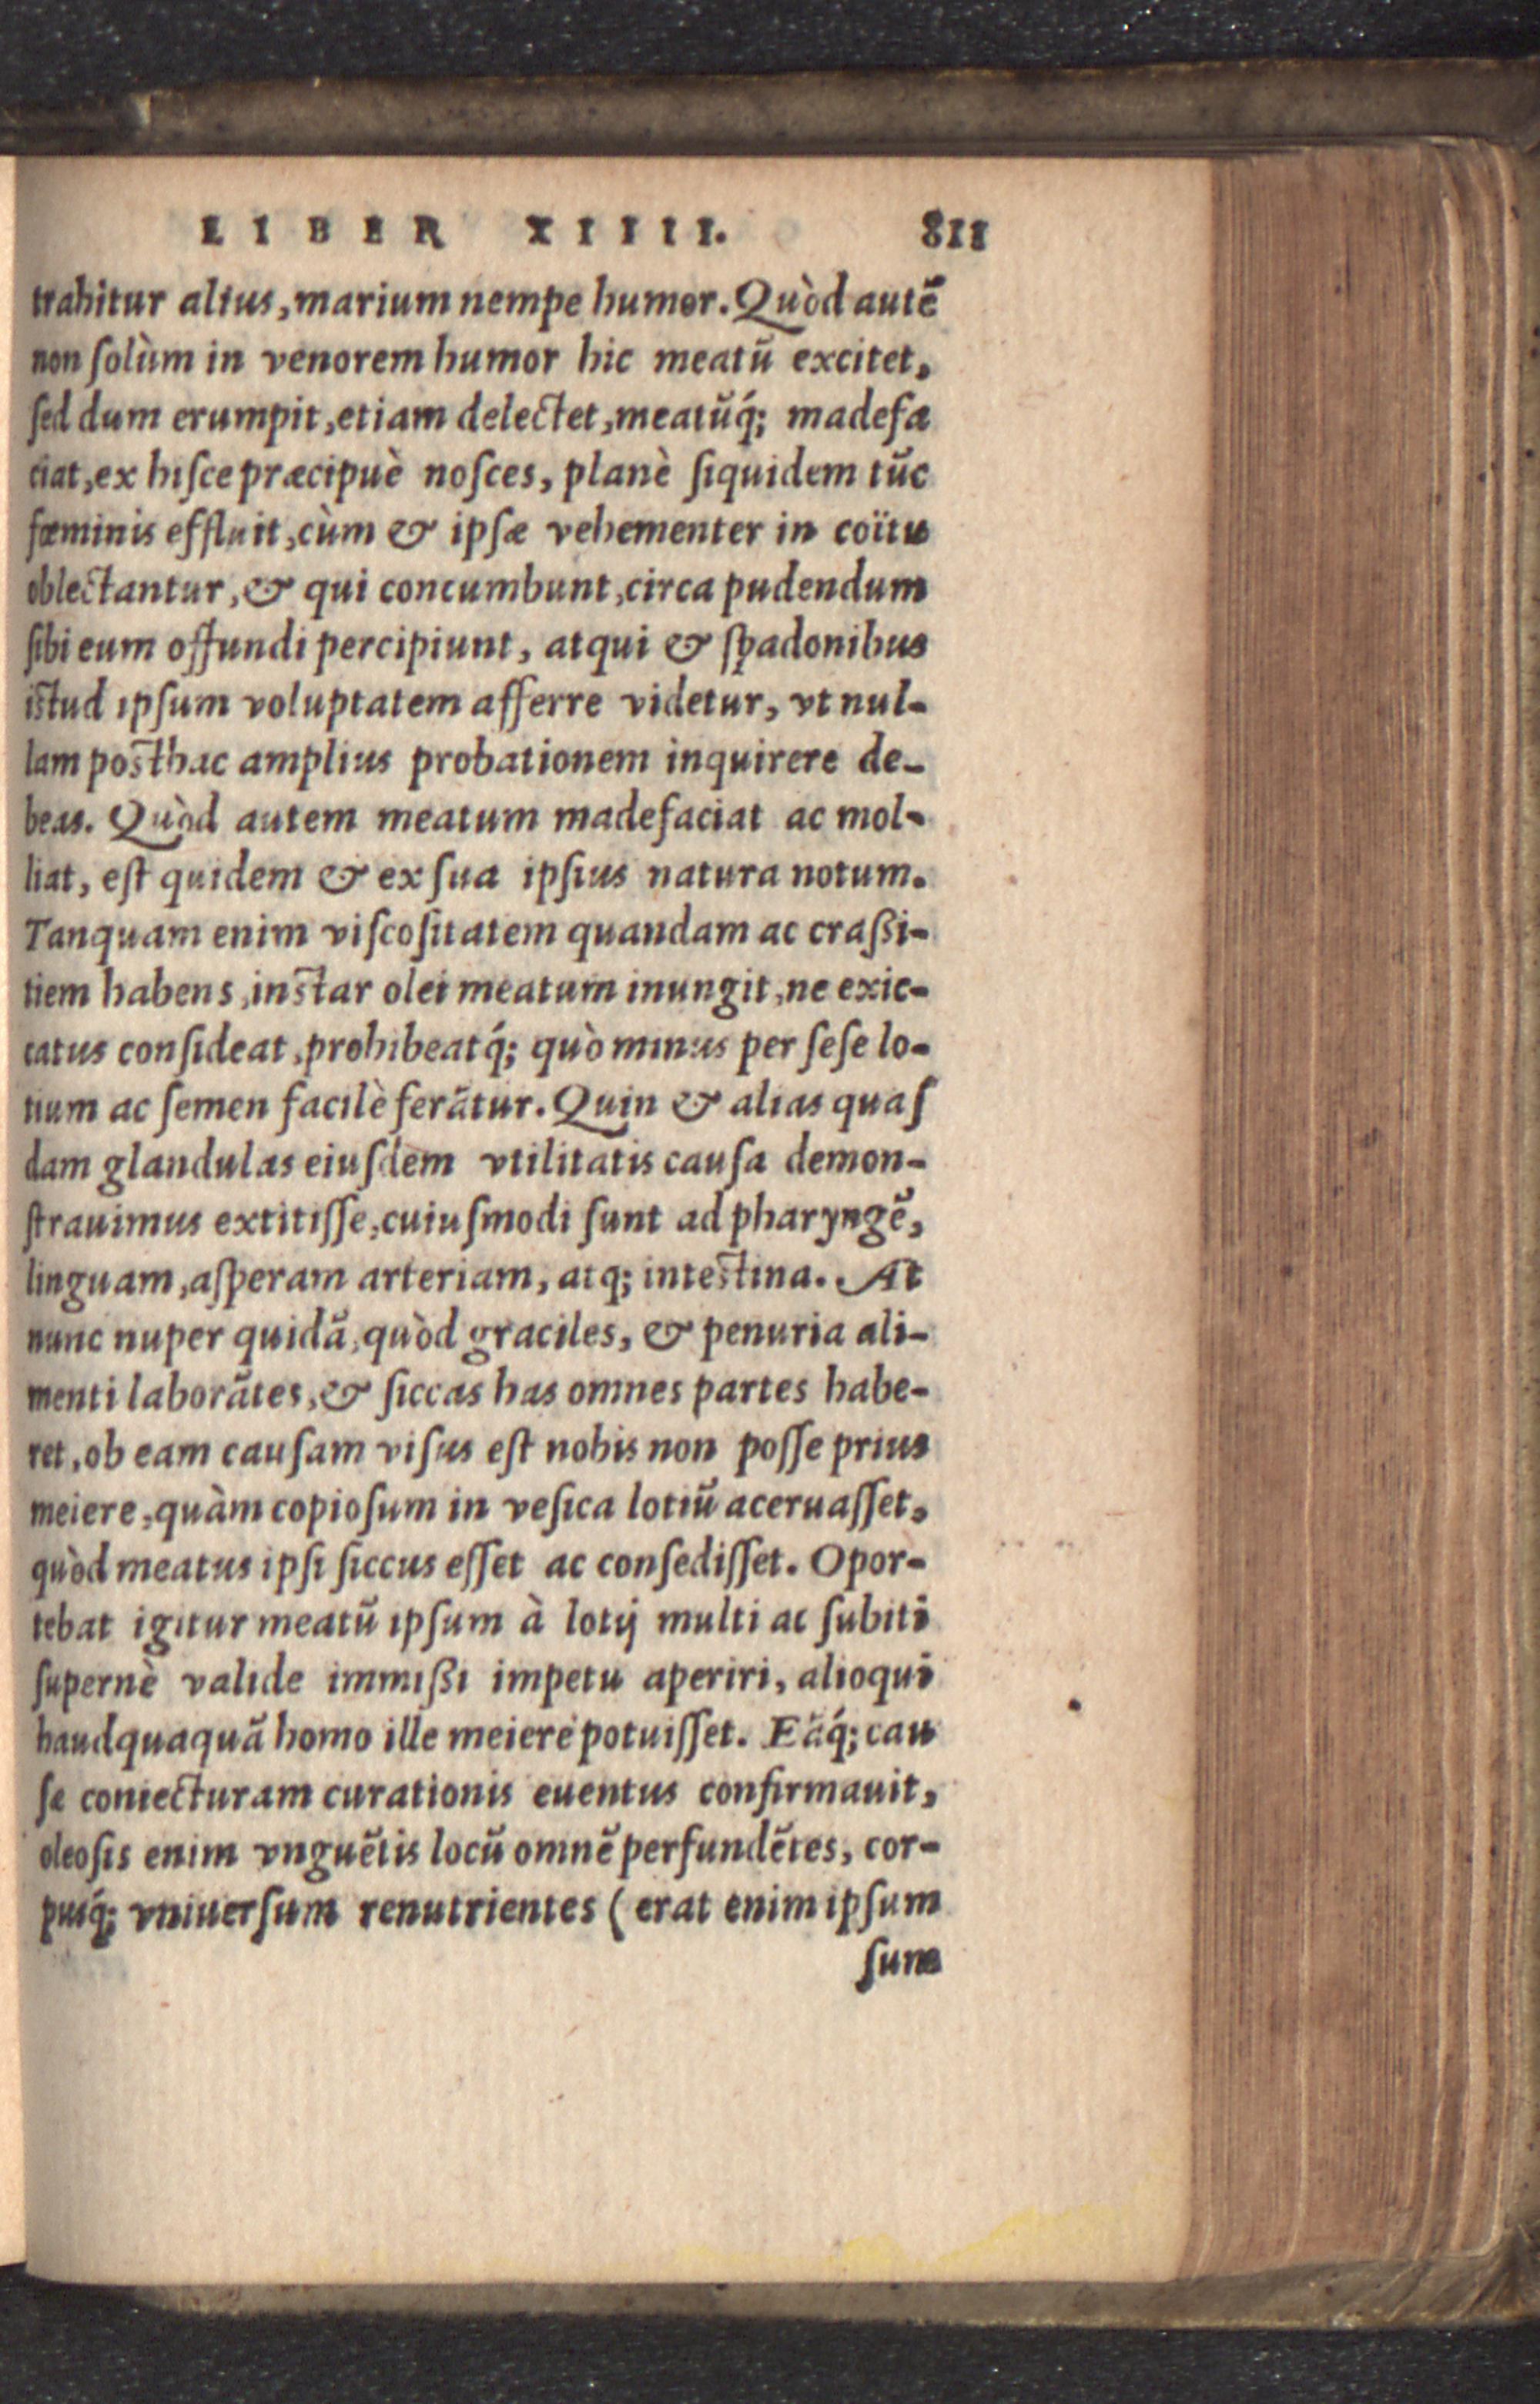 LIBER XIIII. 811
trahitur alius, marium nempe humor. Quòd autẽ
non ſolùm in venorem humor hic meatũ excitet,
ſed dum erumpit, etiam delectet, meatũq́; madefa
ciat, ex hiſce præcipuè noſces, planè ſiquidem tũc
fœminis effluit, cùm & ipſæ vehementer in coïtu
oblectantur, & qui concumbunt, circa pudendum
ſibi eum offundi percipiunt, atqui & ſpadonibus
iſtud ipſum voluptatem afferre videtur, vt nul-
lam poſthac amplius probationem inquirere de-
beas. Quòd autem meatum madefaciat ac mol-
liat, eſt quidem & ex ſua ipſius natura notum.
Tanquam enim viſcoſitatem quandam ac craßi-
tiem habens, inſtar olei meatum inungit, ne exic-
catus conſideat, prohibeatq́; quò minus per ſeſe lo-
tium ac ſemen facilè ferãtur. Quin & alias quaſ
dam glandulas eiuſdem vtilitatis cauſa demon-
ſtrauimus extitiſſe, cuiuſmodi ſunt ad pharyngẽ,
linguam, aſperam arteriam, atq; inteſtina. At
nunc nuper quidã, quòd graciles, & penuria ali-
menti laborãtes, & ſiccas has omnes partes habe-
ret, ob eam cauſam viſus eſt nobis non poſſe prius
meiere, quàm copioſum in veſica lotiũ aceruaſſet,
quòd meatus ipſi ſiccus eſſet ac conſediſſet. Opor-
tebat igitur meatũ ipſum à lotij multi ac ſubiti
ſupernè valide immißi impetu aperiri, alioqui
haudquaquã homo ille meiere potuiſſet. Eãq́; cau
ſæ coniecturam curationis euentus confirmauit,
oleoſis enim vnguẽtis locũ omnẽ perfundẽtes, cor-
puſq́; vniuerſum renutrientes (erat enim ipſum
ſum